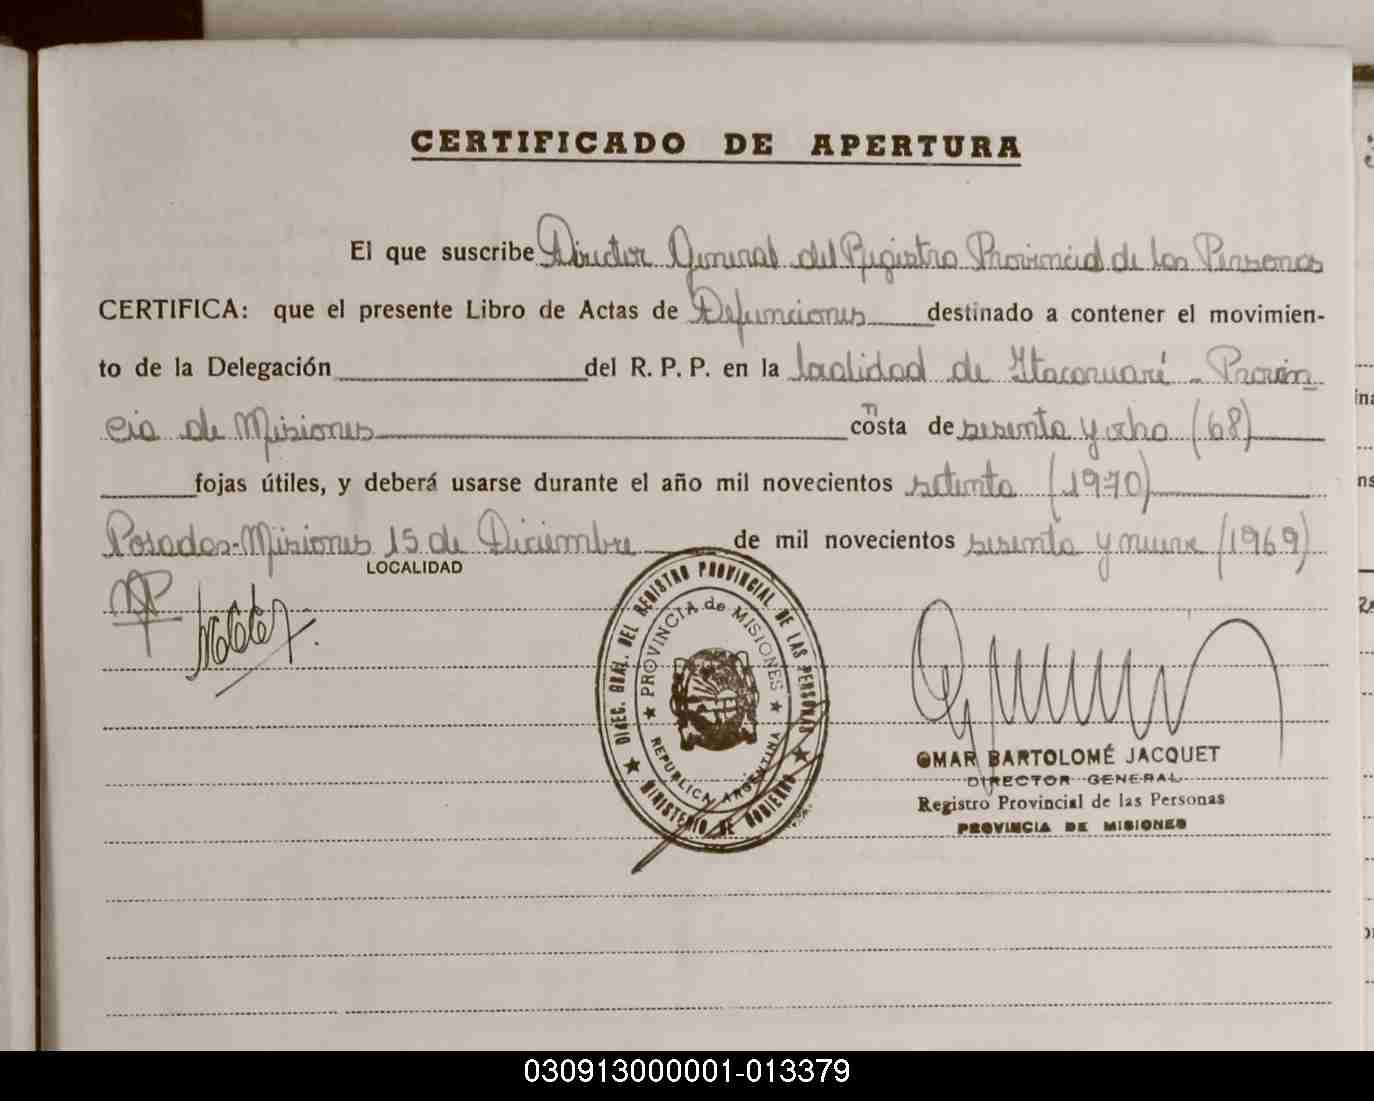 CERTIFICADO DE APERTURA
El que suscribe Director General del Registro Provincial de las Personas
CERTIFICA: que el presente Libro de Actas de Defunciones destinado a contener el movimien-
to de la Delegación del R. P. P. en la localidad de Itacaruaré - Provin
cia de Misiones consta de sesenta y ocho (68)
fojas útiles, y deberá usarse durante el año mil novecientos setenta (1970)
Posadas-Misiones 15 de Diciembre de mil novecientos sesenta y nueve (1969)
LOCALIDAD
DIREC. GRAL. DEL REGISTRO PROVINCIAL DE LAS PERSONAS
PROVINCIA de MISIONES
REPUBLICA ARGENTINA
MINISTERIO DE GOBIERNO
OMAR BARTOLOMÉ JACQUET
DIRECTOR GENERAL
Registro Provincial de las Personas
PROVINCIA DE MISIONES
030913000001-013379